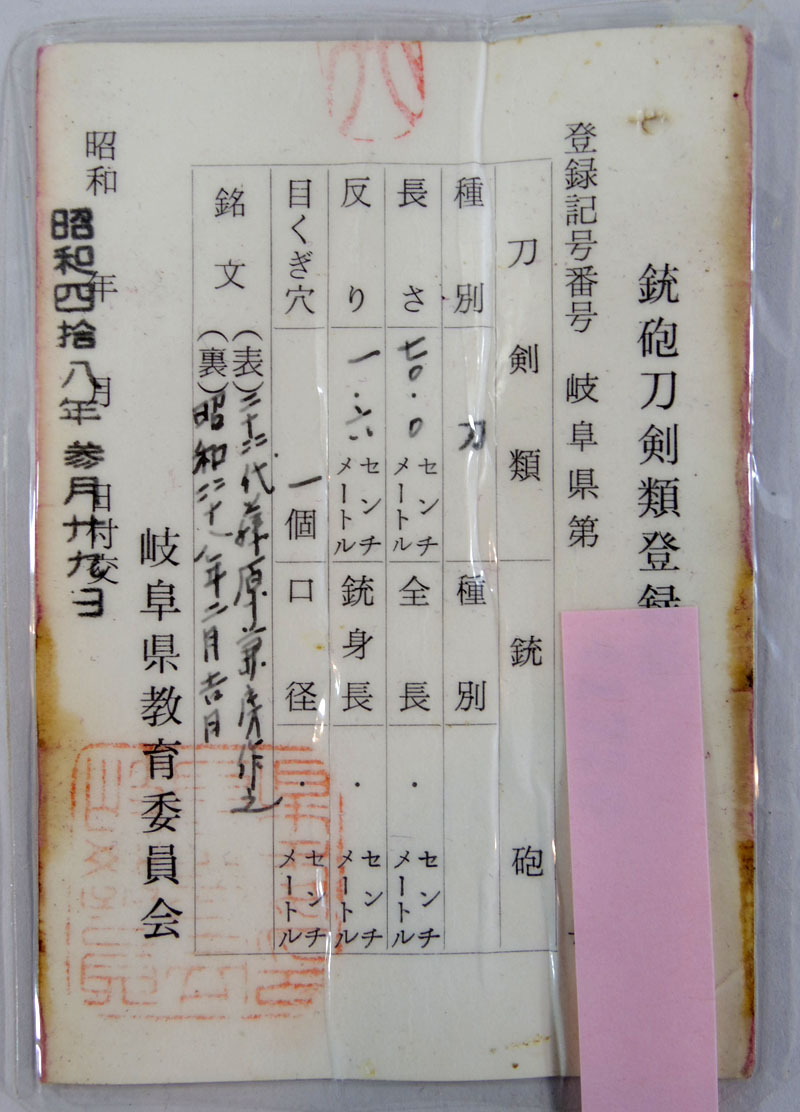 銃砲刀剣類登録
登録記号番号 岐阜県第
刀剣類 銃砲
種別 刀 種別
長さ 七〇.〇 センチメートル 全長 . センチメートル
反り 一.六 センチメートル 銃身長 . センチメートル
目くぎ穴 一個 口径 . センチメートル
銘文 (表)二十六代藤原兼房作之
(裏)昭和四十八年二月吉日
岐阜県教育委員会
昭和 年 月 日付交
昭和四拾八年参月廿九日